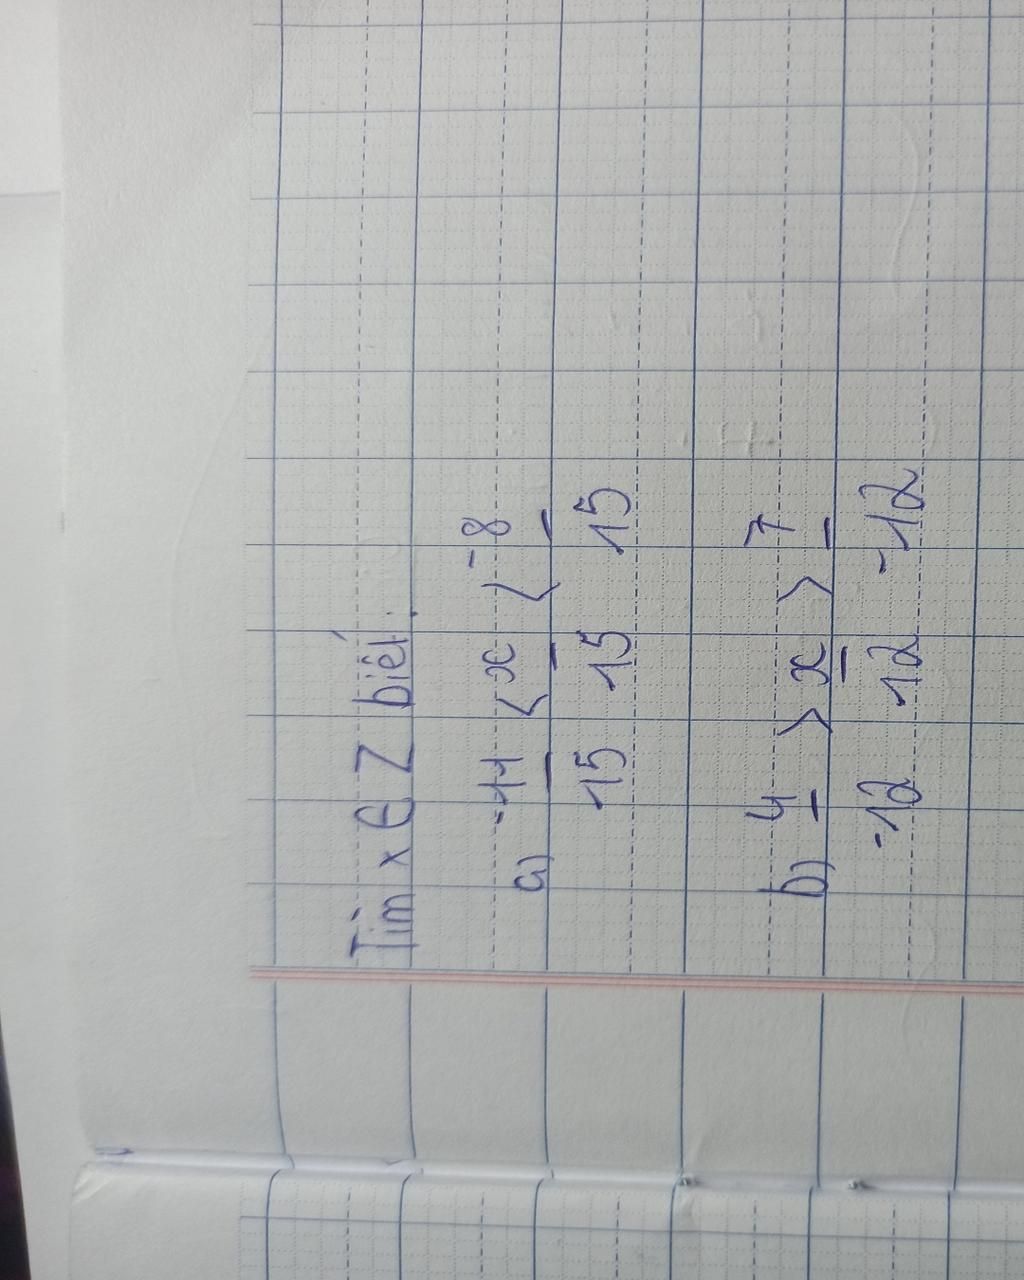 Tìm x ∈ Z biết.
a) -11/15 < x/15 < -8/15
b) 4/-12 > x/12 > 7/-12